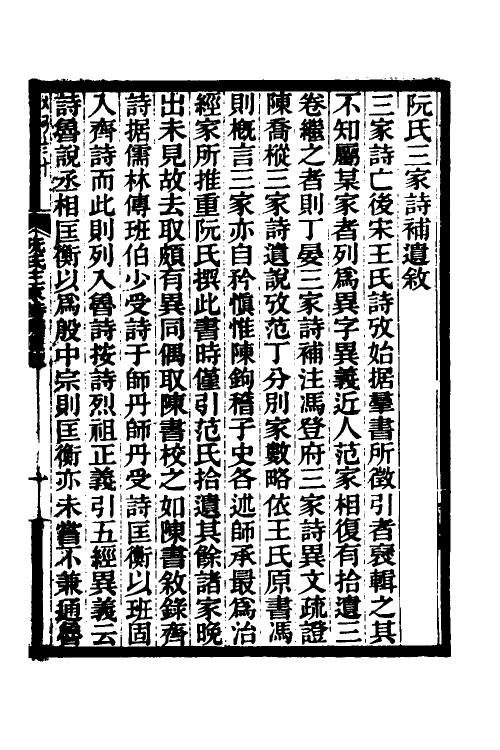 阮氏三家詩補遺敘
三家詩亡後宋王氏詩攷始据羣書所徵引者裒輯之其
不知屬某家者列爲異字異義近人范家相復有拾遺三
卷繼之者則丁晏三家詩補注馮登府三家詩異文疏證
陳喬樅三家詩遺說攷范丁分別家數略依王氏原書馮
則槪言三家亦自矜慎惟陳鉤稽子史各述師承最爲治
經家所推重阮氏撰此書時僅引范氏拾遺其餘諸家晚
出未見故去取頗有異同偶取陳書校之如陳書敘錄齊
詩据儒林傳班伯少受詩于師丹師丹受詩匡衡以班固
入齊詩而此則列入魯詩按詩烈祖正義引五經異義云
詩魯說丞相匡衡以爲殷中宗則匡衡亦未嘗不兼通魯